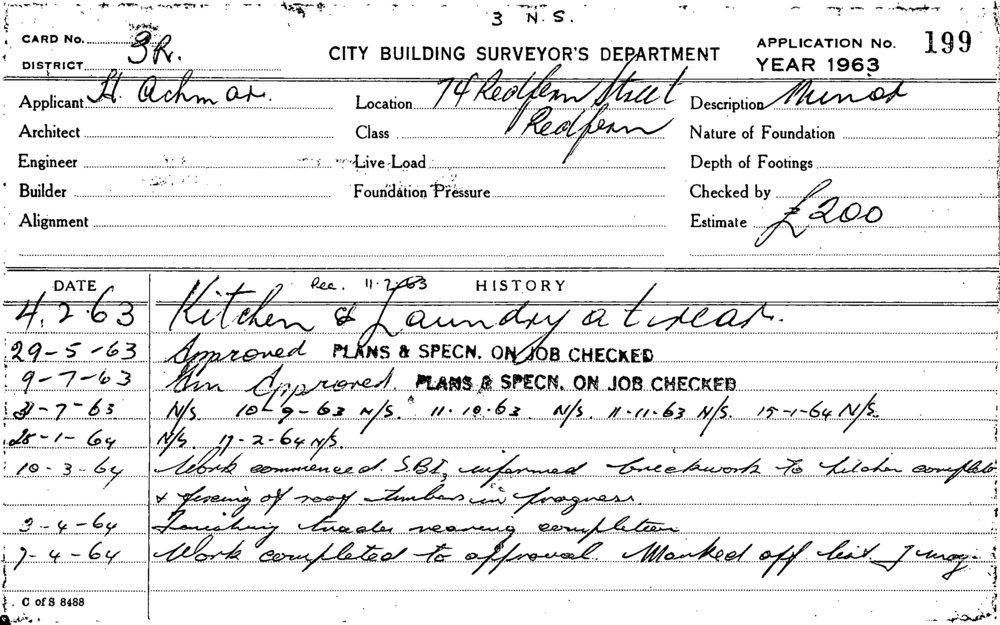 3 N.S.
CARD No.
DISTRICT 3R.
CITY BUILDING SURVEYOR'S DEPARTMENT
APPLICATION No. 199
YEAR 1963
Applicant H. Achmar. Location 74 Redfern Street Description Minor
Redfern
Architect Class Nature of Foundation
Engineer Live Load Depth of Footings
Builder Foundation Pressure Checked by
Alignment Estimate £200
DATE Rec. 11-2-63 HISTORY
4.2.63 Kitchen & Laundry at rear.
29-5-63 Approved PLANS & SPECN. ON JOB CHECKED
9-7-63 Approved. PLANS & SPECN. ON JOB CHECKED
31-7-63 N/S. 10-9-63 N/S. 11.10.63 N/S. 11-11-63 N/S. 15-1-64 N/S.
25-1-64 N/S. 17-2-64 N/S.
10-3-64 Work commenced. S.B.I. informed brickwork to kitchen complete
& fixing of roof timbers in progress
3-4-64 Finishing trades nearing completion
7-4-64 Work completed to approval Marked off list
C of S 8488